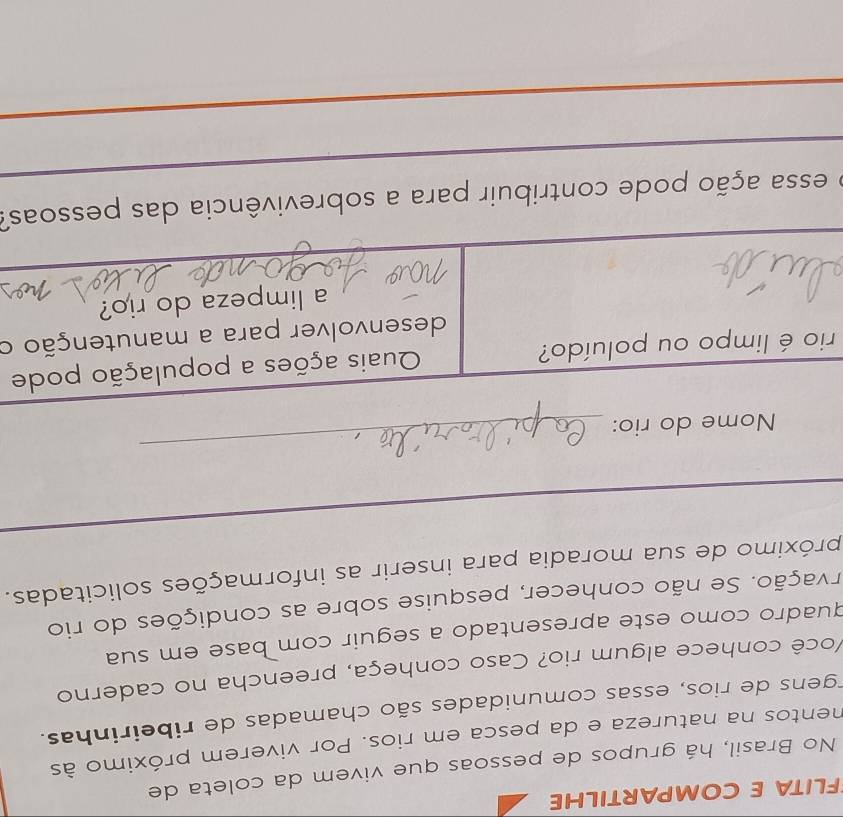 FLITA E COMPARTILHE
No Brasil, há grupos de pessoas que vivem da coleta de
nentos na natureza e da pesca em rios. Por viverem próximo às
rgens de rios, essas comunidades são chamadas de ribeirinhas.
Você conhece algum rio? Caso conheça, preencha no caderno
quadro como este apresentado a seguir com base em sua
rvação. Se não conhecer, pesquise sobre as condições do rio
próximo de sua moradia para inserir as informações solicitadas.
Nome do rio:
rio é limpo ou poluído?
Quais ações a população pode
desenvolver para a manutenção o
a limpeza do rio?
não
essa ação pode contribuir para a sobrevivência das pessoas?